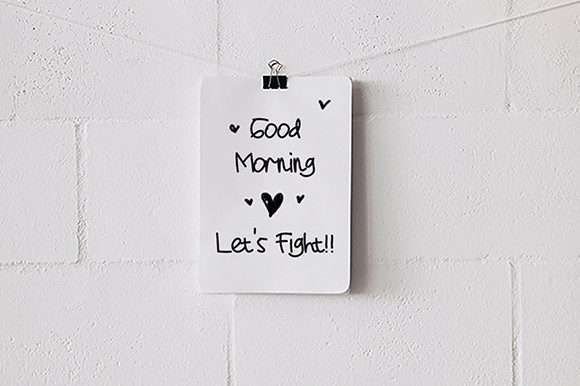 Good
Morning
Let's Fight!!